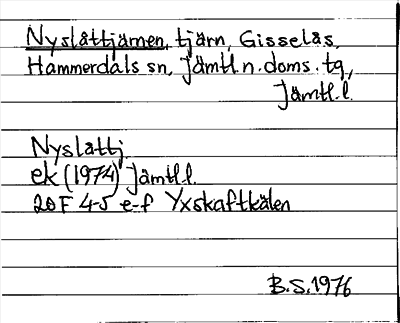 Nyslåttjärnen, tjärn, Gisselås,
Hammerdals sn, Jämtl. n. doms. tg,
Jämtl. l.
Nyslåttj
ek (1974) Jämtl. l.
20 F 4-5 e-f Yxskaftkälen
B.S. 1976